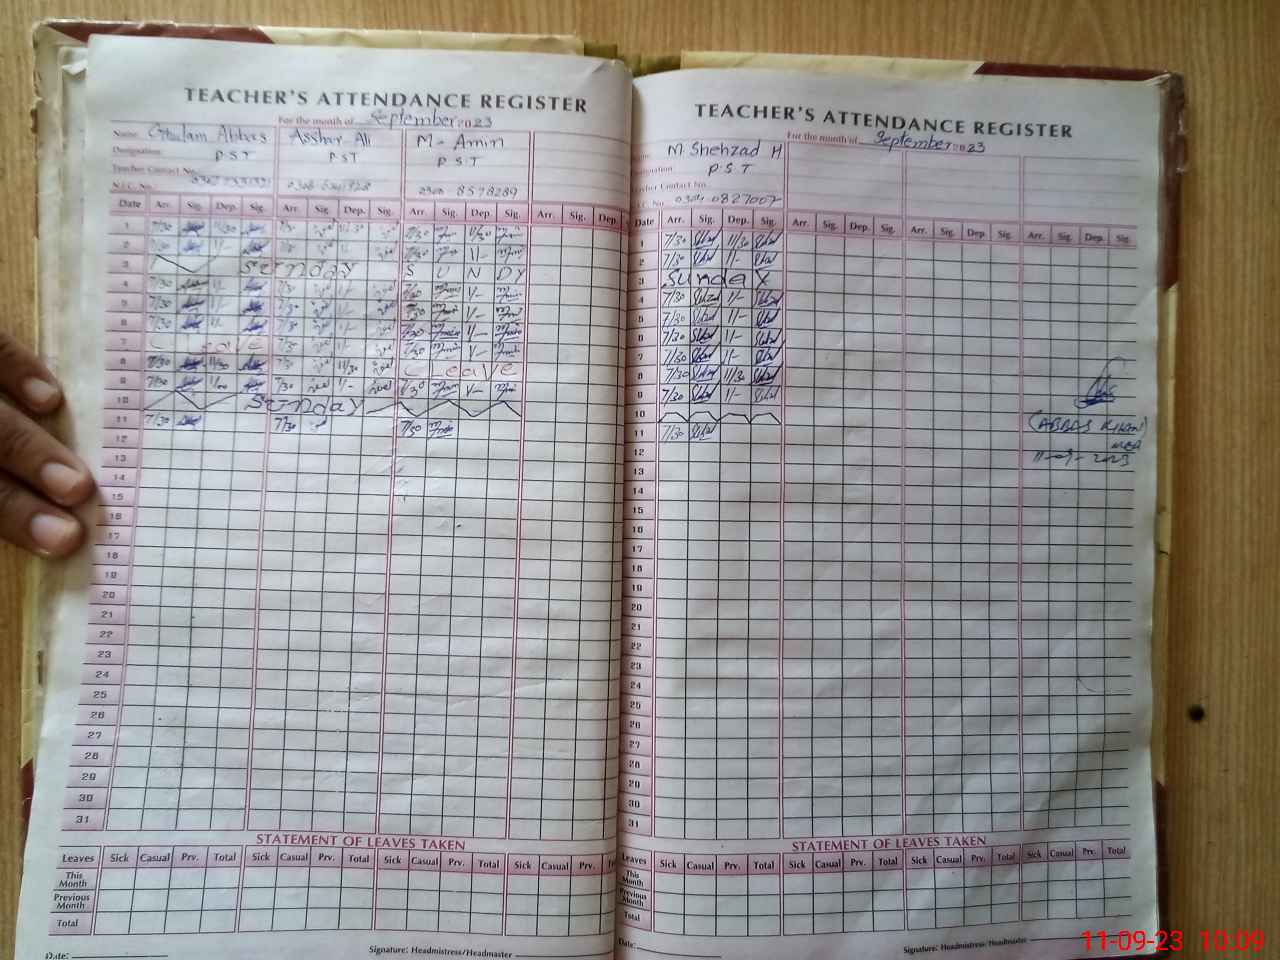 TEACHER'S ATTENDANCE REGISTER
For the month of September 2023
Name Ghulam Abbas Asghar Ali M- Amin
Designation PST PST PST
Teacher Contact No.
N.I.C. No. 0300 8578289
Date Arr. Sig. Dep. Sig. Arr. Sig. Dep. Sig. Arr. Sig. Dep. Sig. Arr. Sig. Dep.
1 7/30 11/30 7/30 11/30 7/30 11/30
2 7/30 1/- 7/30 1/- 7/30 11/-
3 Sunday SUNDY
4 7/30 1/- 7/30 1/- 7/30 1/-
5 7/30 1/- 7/30 1/- 7/30 1/-
6 7/30 1/- 7/30 1/- 7/30 1/-
7 C Leave 7/30 1/- 7/30 1/-
8 7/30 11/30 7/30 11/30 C Leave
9 7/30 7/30 1/- 1/-
10 Sunday
11 7/30 7/30 7/30
12
13
14
15
16
17
18
19
20
21
22
23
24
25
26
27
28
29
30
31
STATEMENT OF LEAVES TAKEN
Leaves Sick Casual Prv. Total Sick Casual Prv. Total Sick Casual Prv. Total Sick Casual Prv.
This Month
Previous Month
Total
Date: Signature: Headmistress/Headmaster
TEACHER'S ATTENDANCE REGISTER
For the month of September 2023
M Shehzad H
PST
Contact No.
No. 0304-0827007
Date Arr. Sig. Dep. Sig. Arr. Sig. Dep. Sig. Arr. Sig. Dep. Sig. Arr. Sig. Dep. Sig.
1 7/30 11/30
2 7/30 1/-
3 Sunday
4 7/30 1/-
5 7/30 1/-
6 7/30 1/-
7 7/30 1/-
8 7/30 11/30
9 7/30 1/-
10
11 7/30
(ABBAS Khan)
MEA
11-09-2023
12
13
14
15
16
17
18
19
20
21
22
23
24
25
26
27
28
29
30
31
STATEMENT OF LEAVES TAKEN
Leaves Sick Casual Prv. Total Sick Casual Prv. Total Sick Casual Prv. Total Sick Casual Prv. Total
This Month
Previous Month
Total
Date: Signature: Headmistress/Headmaster
11-09-23 10:09